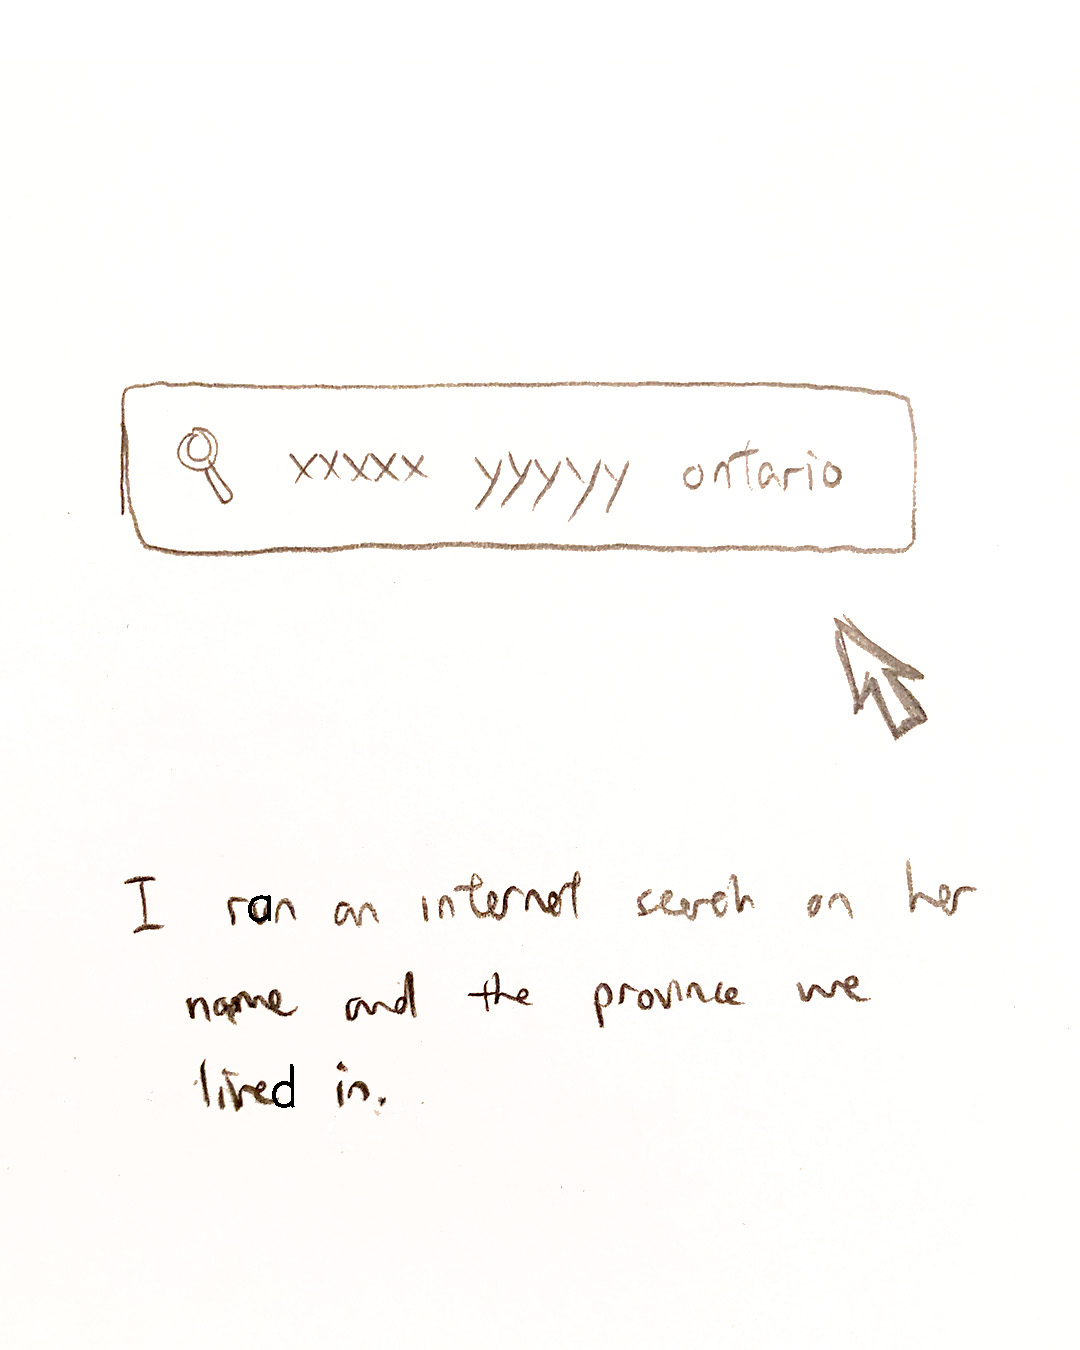 xxxxx yyyyy ontario
I ran an internet search on her
name and the province we
lived in.